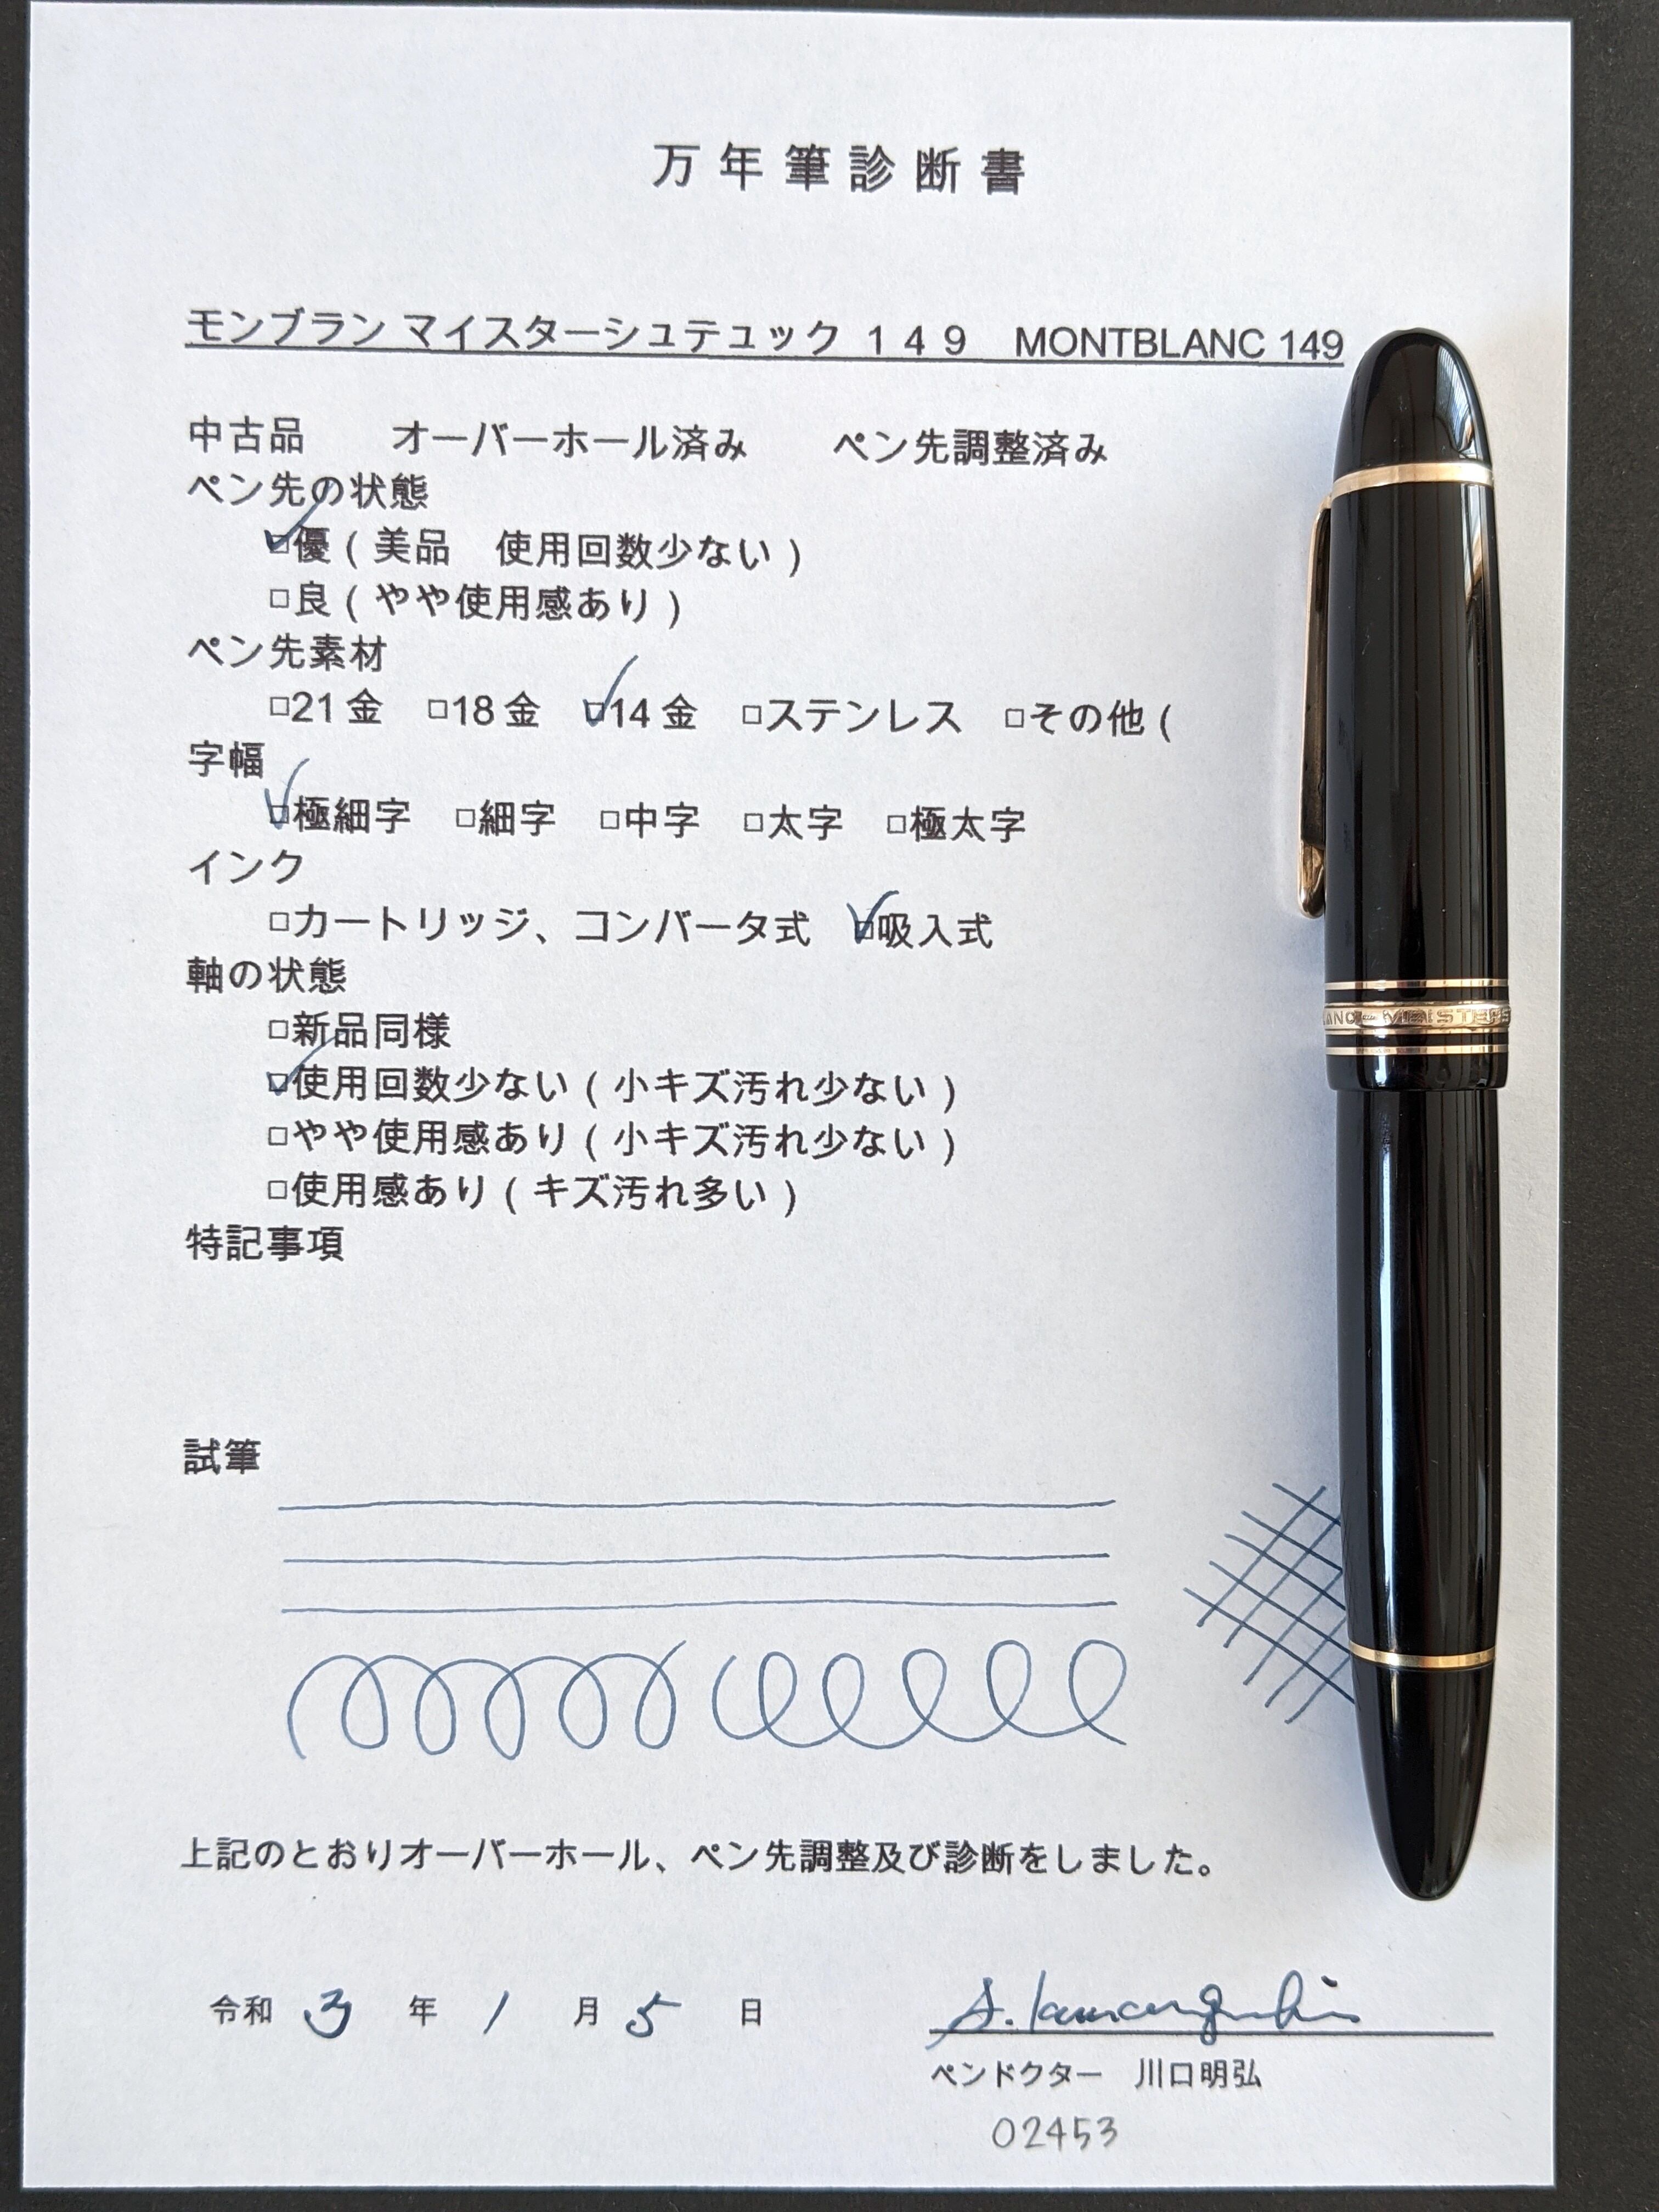 万年筆診断書
モンブラン マイスターシュテュック １４９　MONTBLANC 149
中古品　　オーバーホール済み　　ペン先調整済み
ペン先の状態
☑優（美品　使用回数少ない）
□良（やや使用感あり）
ペン先素材
□21金　□18金　☑14金　□ステンレス　□その他（
字幅
☑極細字　□細字　□中字　□太字　□極太字
インク
□カートリッジ、コンバータ式　☑吸入式
軸の状態
□新品同様
☑使用回数少ない（小キズ汚れ少ない）
□やや使用感あり（小キズ汚れ少ない）
□使用感あり（キズ汚れ多い）
特記事項
試筆
上記のとおりオーバーホール、ペン先調整及び診断をしました。
令和 3 年 1 月 5 日
ペンドクター　川口明弘
02453